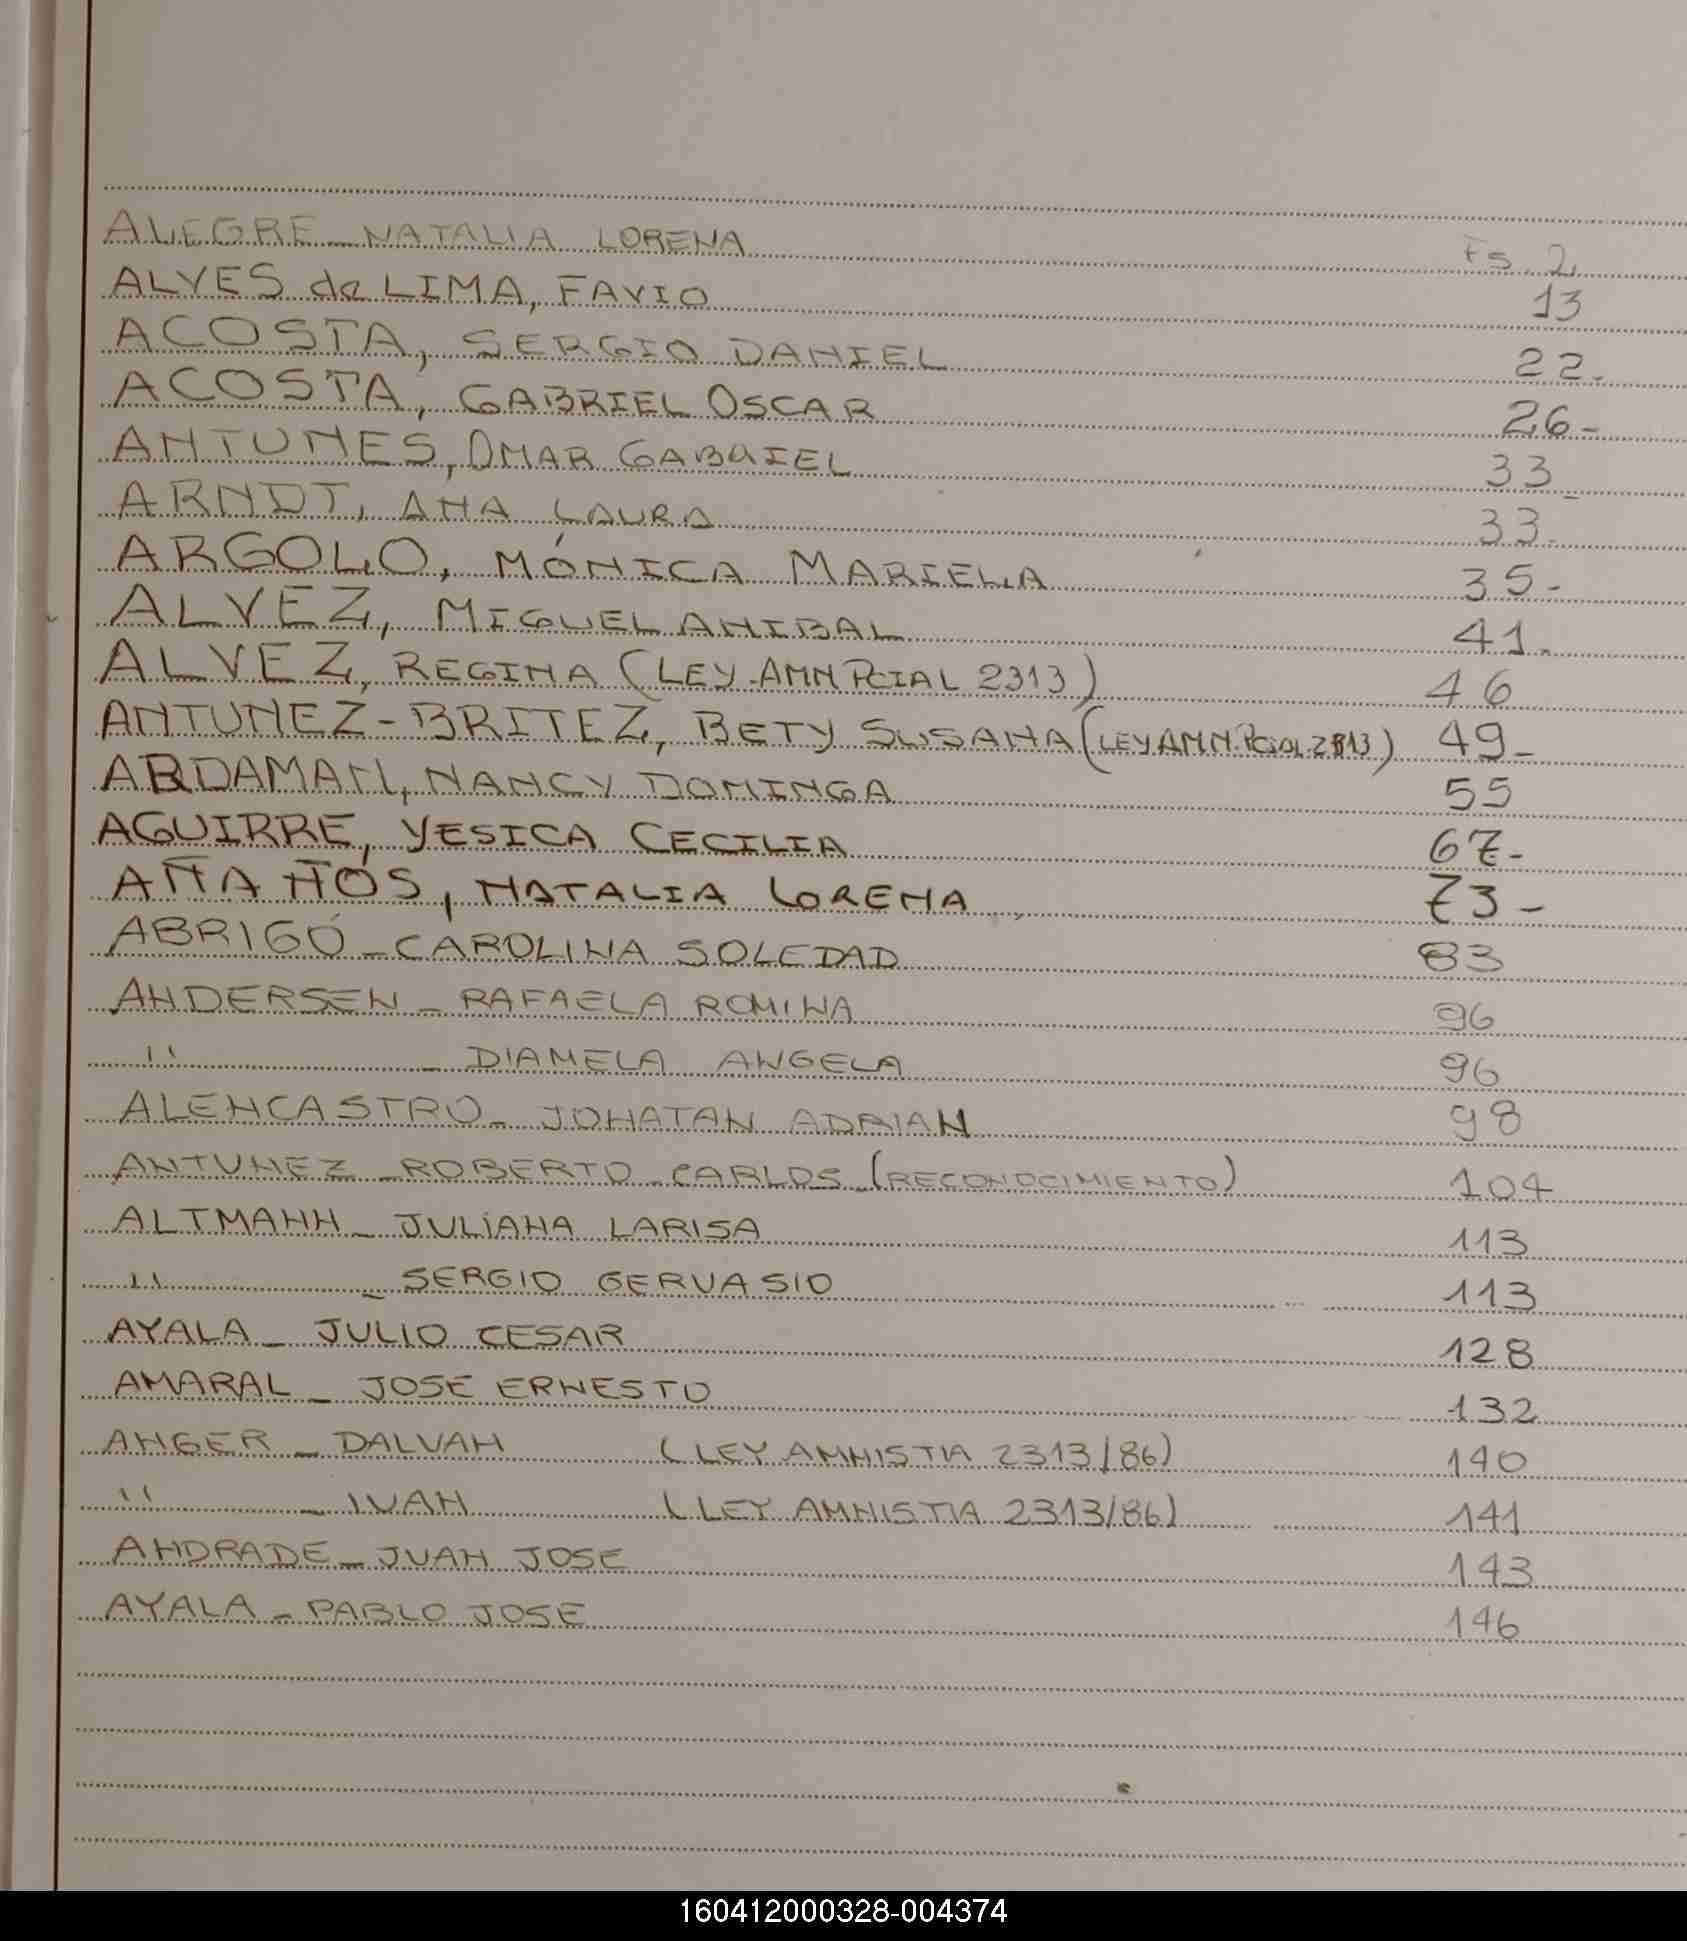 ALEGRE - NATALIA LORENA Fs. 2
ALVES de LIMA, FAVIO 13
ACOSTA, SERGIO DANIEL 22-
ACOSTA, GABRIEL OSCAR 26-
ANTUNES, OMAR GABRIEL 33-
ARNDT, ANA LAURA 33-
ARGOLO, MÓNICA MARIELA 35-
ALVEZ, MIGUEL ANIBAL 41-
ALVEZ, REGINA (LEY AMN PCIAL 2313) 46
ANTUNEZ-BRITEZ, BETY SUSANA (LEY AMN. PCIAL 2313) 49-
ABDAMAN, NANCY DOMINGA 55
AGUIRRE, YESICA CECILIA 67-
AÑAÑOS, NATALIA LORENA 73-
ABRIGÓ - CAROLINA SOLEDAD 83
ANDERSEN - RAFAELA ROMINA 96
" - DIAMELA ANGELA 96
ALENCASTRO - JONATAN ADRIAN 98
ANTUNEZ - ROBERTO CARLOS (RECONOCIMIENTO) 104
ALTMANN - JULIANA LARISA 113
" - SERGIO GERVASIO 113
AYALA - JULIO CESAR 128
AMARAL - JOSE ERNESTO 132
ANGER - DALVAN (LEY AMNISTIA 2313/86) 140
" - IVAN (LEY AMNISTIA 2313/86) 141
ANDRADE - JUAN JOSE 143
AYALA - PABLO JOSE 146
160412000328-004374